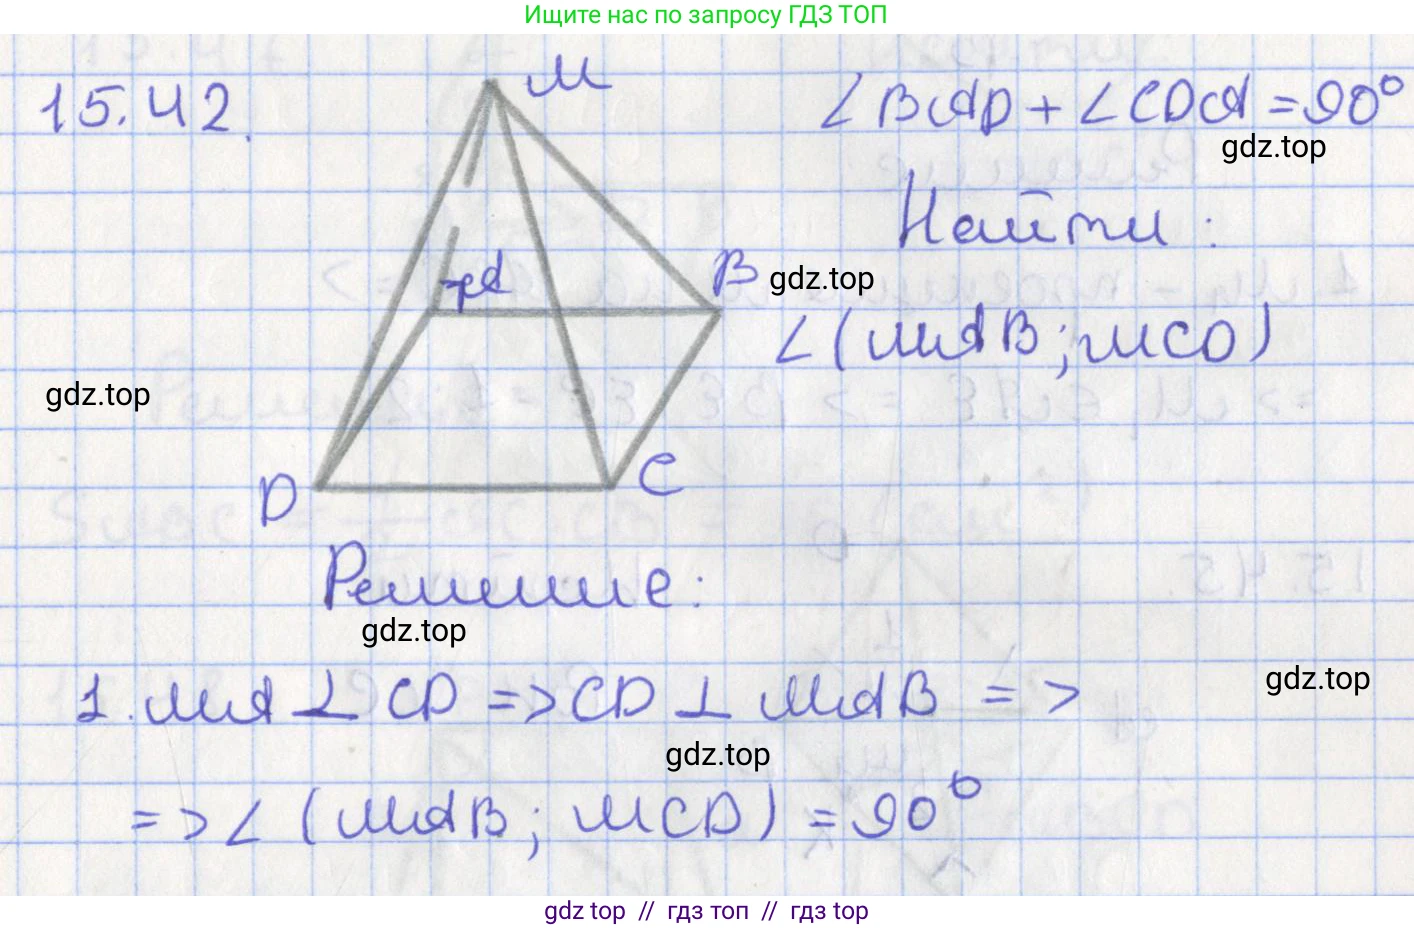 Ищите нас по запросу ГДЗ ТОП
15.42.
M
∠BAD + ∠CDA = 90°
gdz.top
Найти:
A
B
gdz.top
∠(MAB; MCD)
gdz.top
D
C
Решение:
gdz.top
1. MA ⊥ CD => CD ⊥ MAB =>
gdz.top
gdz.top
=> ∠(MAB; MCD) = 90°
gdz top // гдз топ // гдз top